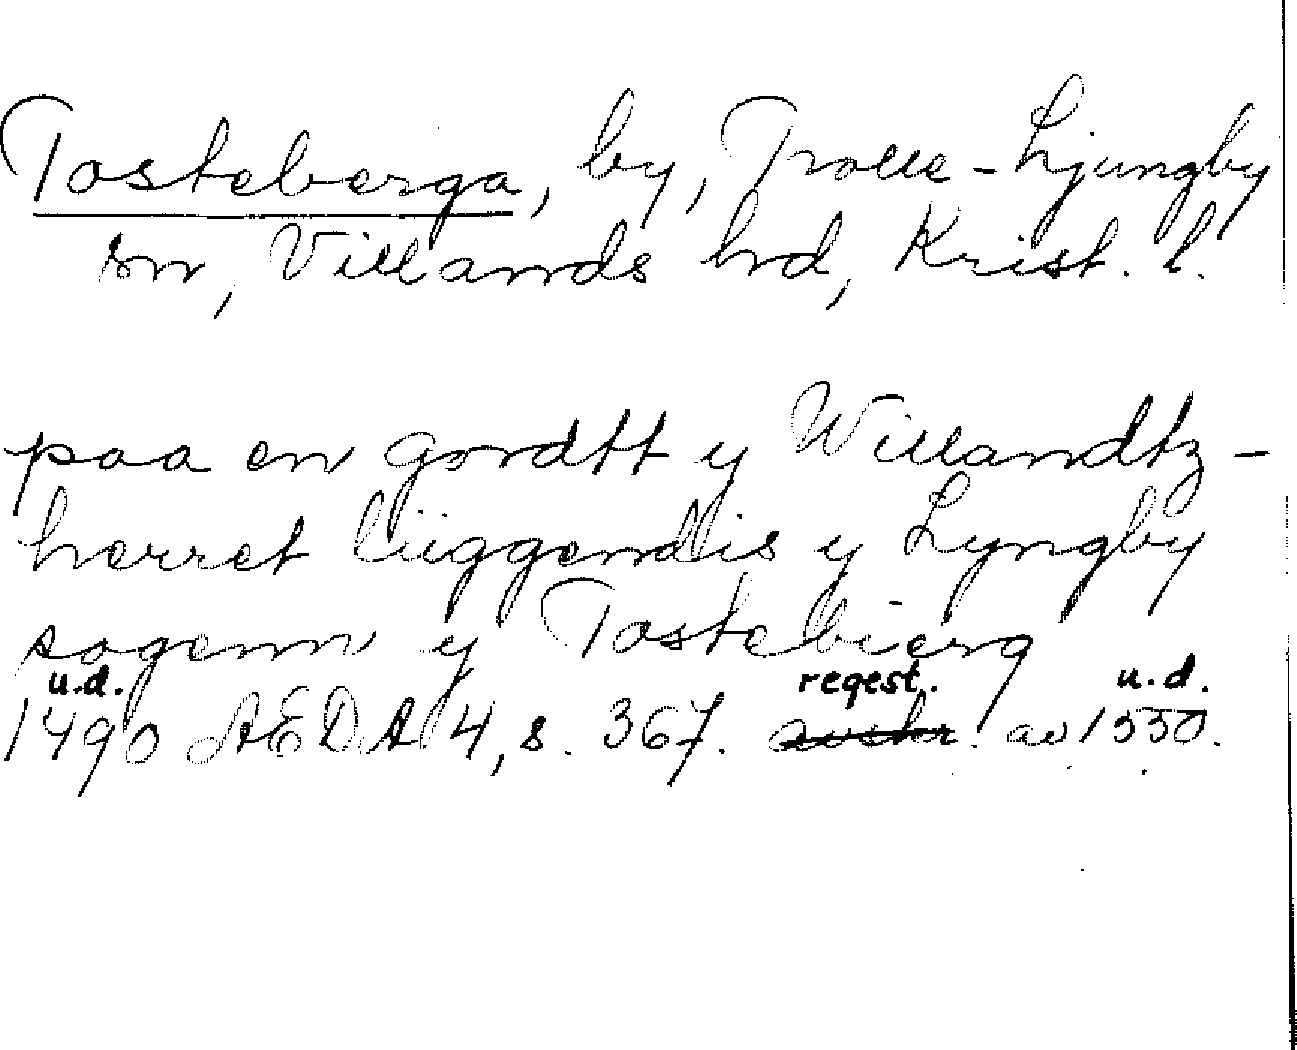 Tosteberga, by, Trolle-Ljungby
sn, Villands hd, Krist. l.
paa en gordtt y Willandtz-
herret liiggendis y Lyngby
sogenn y Tostebierg
u.d. regest. u.d.
1490 ÆDA 4, s. 367. avskr. av 1550.